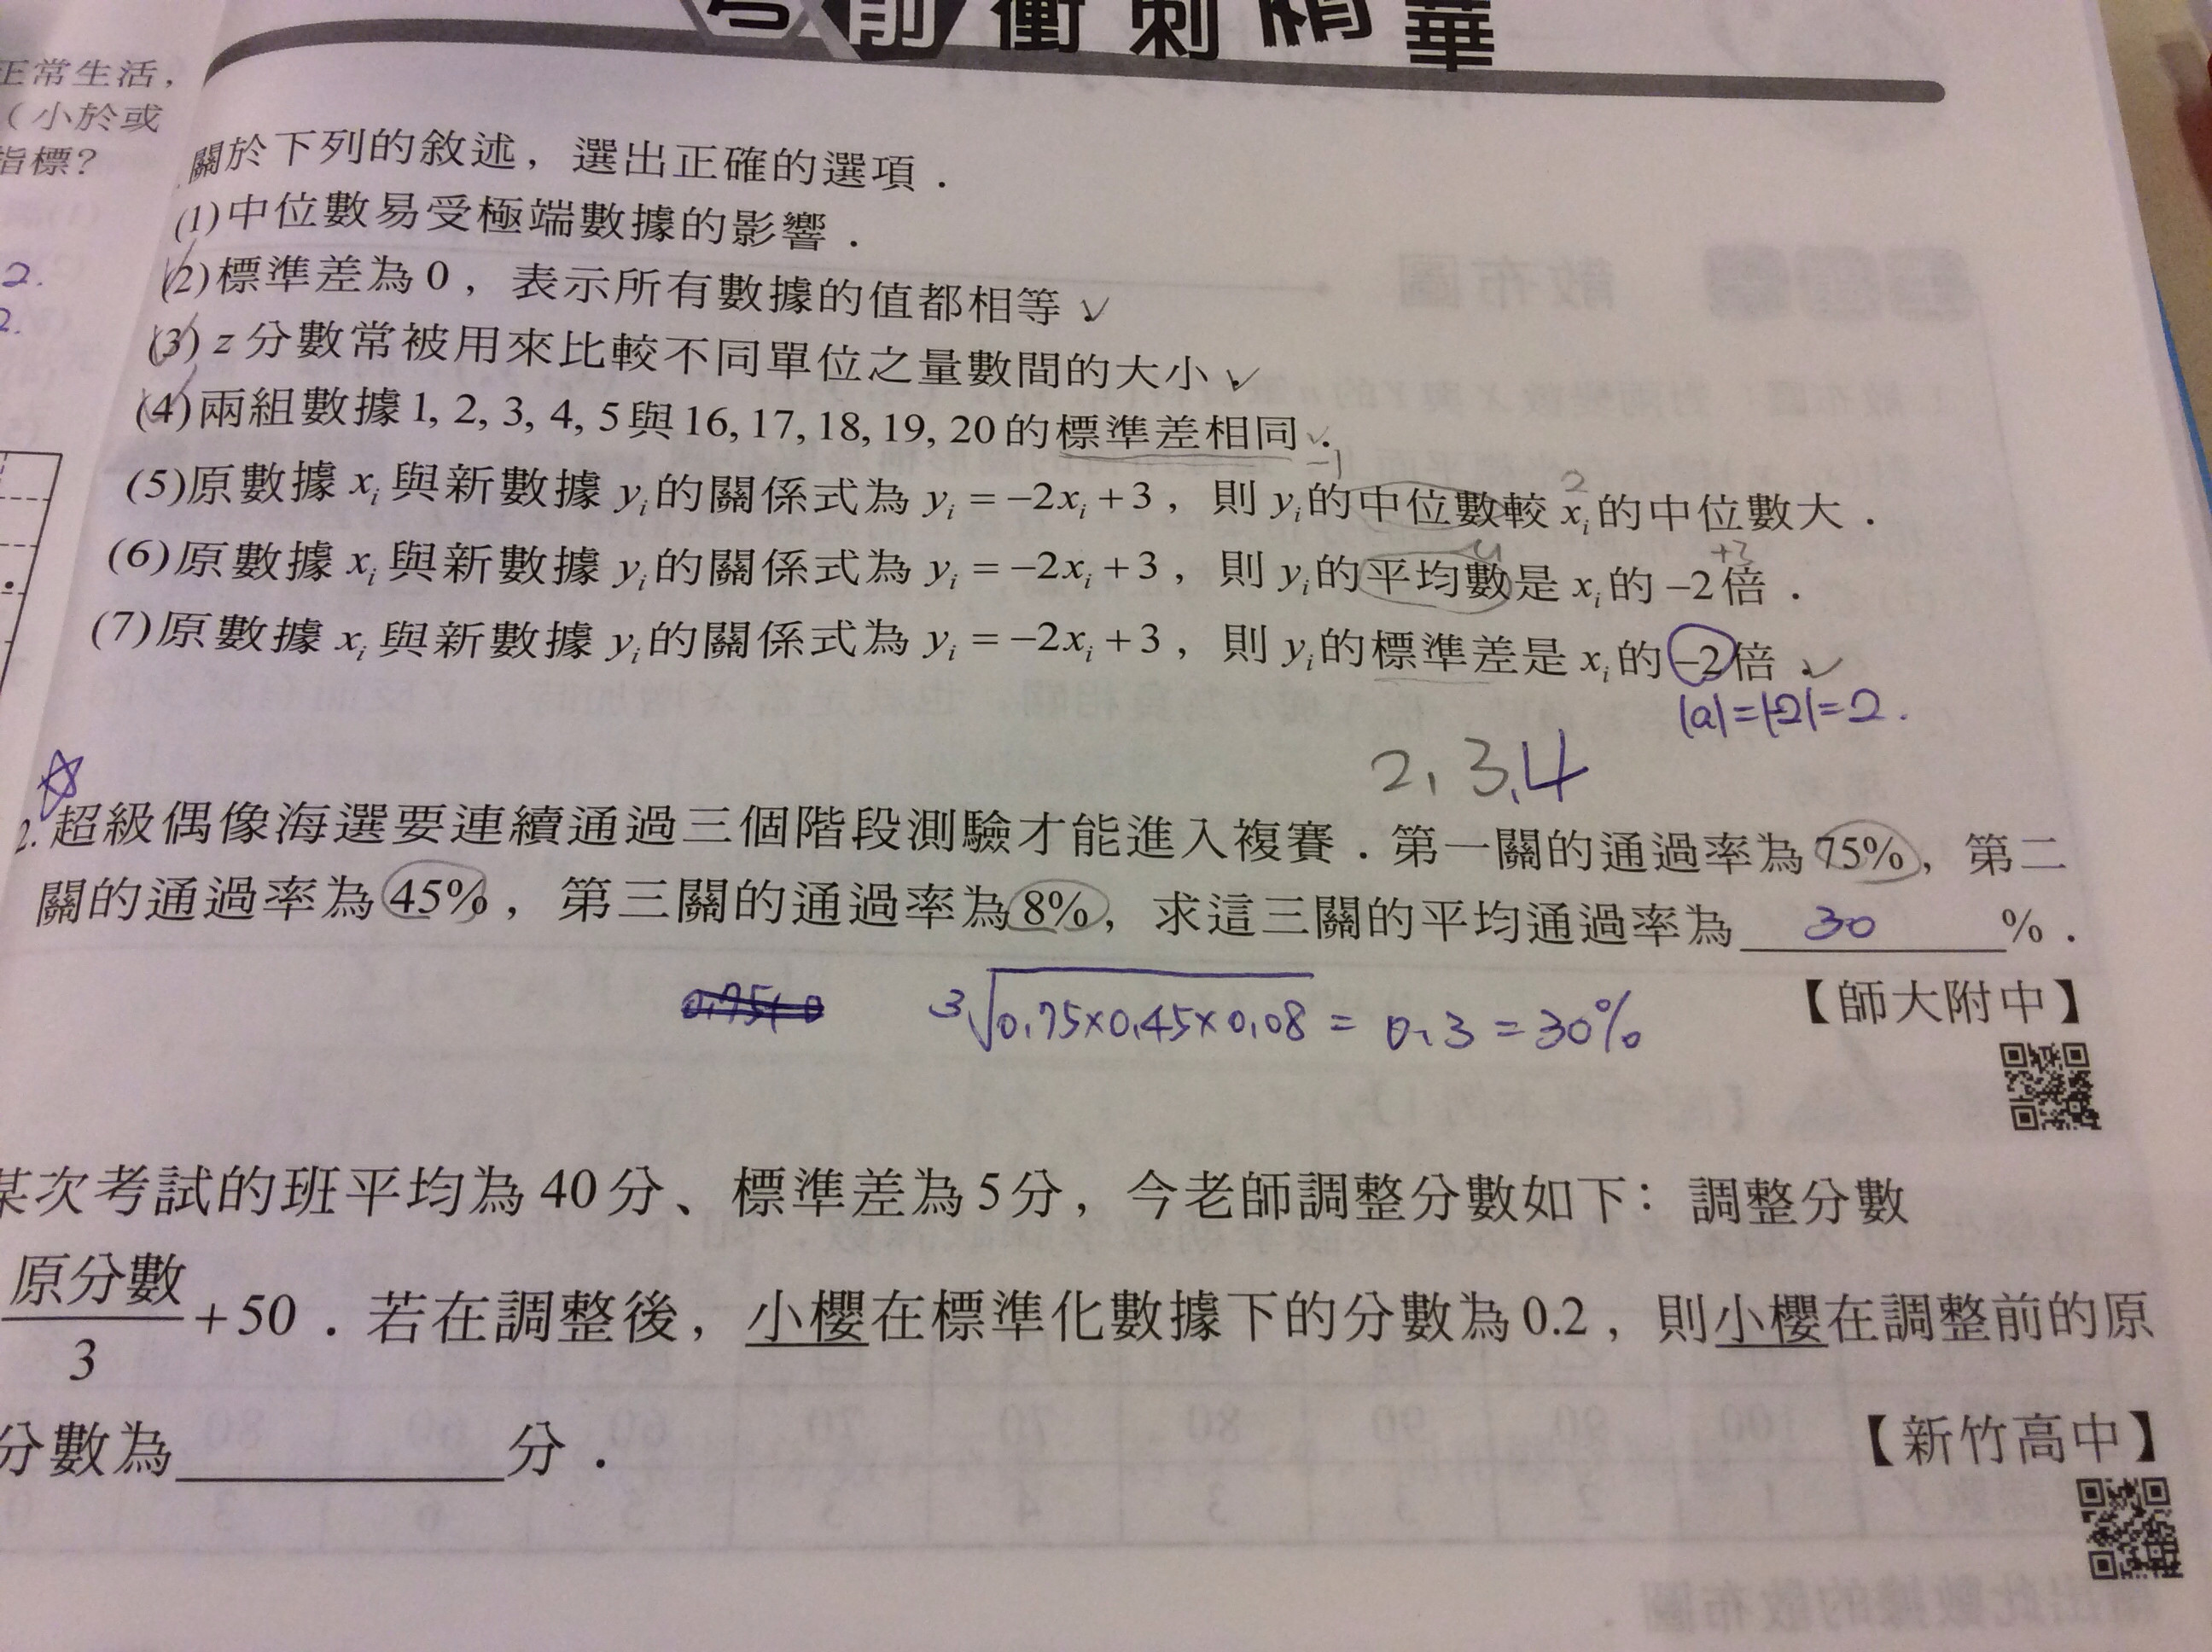 考前衝刺精華
正常生活，
（小於或
指標？
關於下列的敘述，選出正確的選項．
(1)中位數易受極端數據的影響．
(2)標準差為0，表示所有數據的值都相等✓
(3) z分數常被用來比較不同單位之量數間的大小✓
(4)兩組數據1, 2, 3, 4, 5與16, 17, 18, 19, 20的標準差相同．✓
2.
2.
-1
2
(5)原數據 xi 與新數據 yi 的關係式為 yi = −2xi + 3，則 yi 的中位數較 xi 的中位數大．
+3
(6)原數據 xi 與新數據 yi 的關係式為 yi = −2xi + 3，則 yi 的平均數是 xi 的 −2倍．
(7)原數據 xi 與新數據 yi 的關係式為 yi = −2xi + 3，則 yi 的標準差是 xi 的 −2倍 ✓
|a|=|-2|=2.
2, 3, 4
2. 超級偶像海選要連續通過三個階段測驗才能進入複賽．第一關的通過率為75%，第二
關的通過率為45%，第三關的通過率為8%，求這三關的平均通過率為 30 %．
【師大附中】
3√0.75×0.45×0.08 = 0.3 = 30%
某次考試的班平均為40分、標準差為5分，今老師調整分數如下：調整分數
原分數/3 +50．若在調整後，小櫻在標準化數據下的分數為0.2，則小櫻在調整前的原
分數為 分．
【新竹高中】